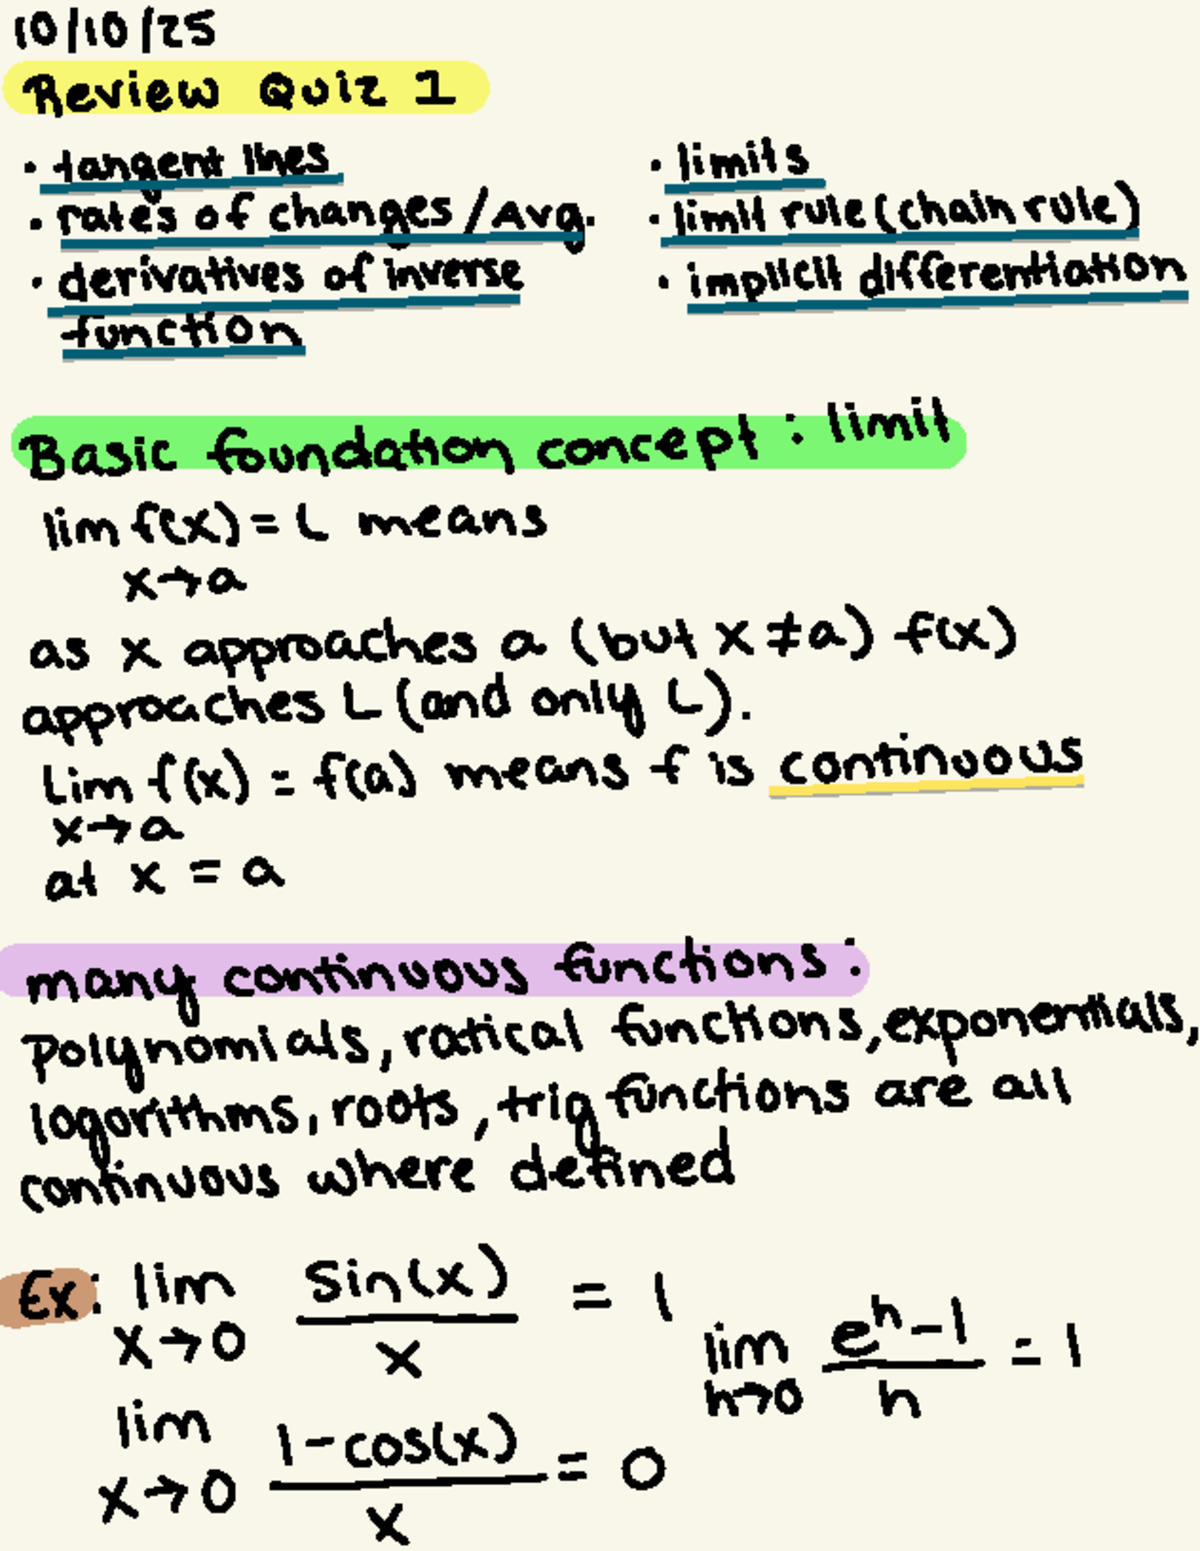 10/10/25
Review Quiz 1
· tangent lines
· rates of changes/Avg.
· derivatives of inverse
function
· limits
· limit rule (chain rule)
· implicit differentiation
Basic foundation concept : limit
lim f(x) = L means
x→a
as x approaches a (but x ≠ a) f(x)
approaches L (and only L).
Lim f(x) = f(a) means f is continuous
x→a
at x = a
many continuous functions:
Polynomials, ratical functions, exponentials,
logorithms, roots, trig functions are all
continuous where defined
Ex: lim sin(x)/x = 1
x→0
lim e^h-1/h = 1
h→0
lim 1-cos(x)/x = 0
x→0